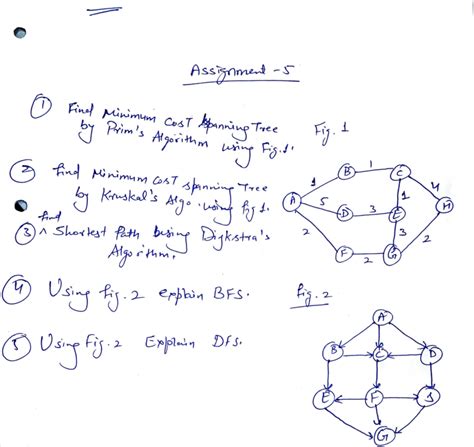 Assignment - 5
① Find Minimum Cost Spanning Tree
by Prim's Algorithm using Fig. 1.
Fig. 1
② find Minimum Cost Spanning Tree
by Kruskal's Algo. using fig 1.
③ find Shortest Path using Digkstra's
Algorithm.
④ Using fig. 2 explain BFS.
⑤ Using Fig. 2 Explain DFS.
A B C D E F G H
1 1 5 3 1 4 2 2 3 2
fig. 2
A
B C D
E F S
G